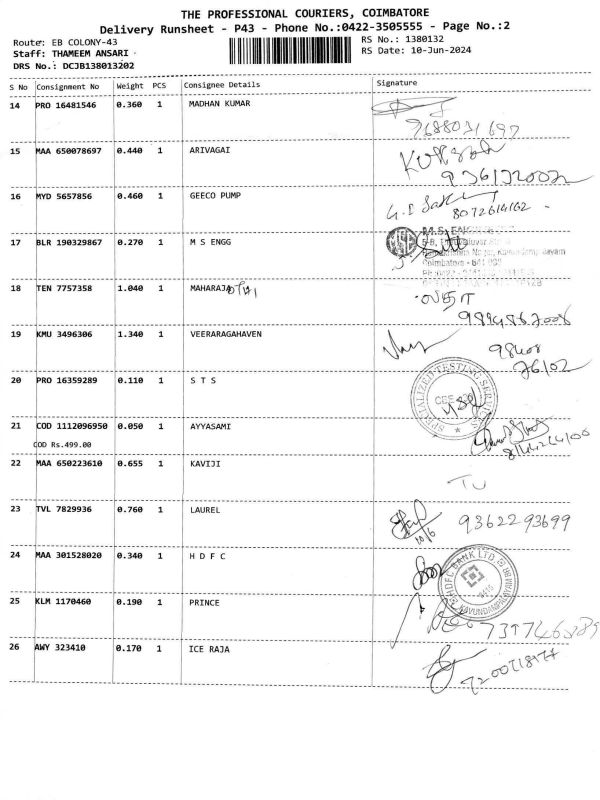 THE PROFESSIONAL COURIERS, COIMBATORE
Delivery Runsheet - P43 - Phone No.:0422-3505555 - Page No.:2
Route: EB COLONY-43 RS No.: 1380132
Staff: THAMEEM ANSARI RS Date: 10-Jun-2024
DRS No.: DCJB138013202
S No Consignment No Weight PCS Consignee Details Signature
14 PRO 16481546 0.360 1 MADHAN KUMAR
15 MAA 650078697 0.440 1 ARIVAGAI
16 MYD 5657856 0.460 1 GEECO PUMP
8072614162
17 BLR 190329867 0.270 1 M S ENGG
Coimbatore - 641
18 TEN 7757358 1.040 1 MAHARAJA
19 KMU 3496306 1.340 1 VEERARAGAHAVEN
20 PRO 16359289 0.110 1 S T S
SPECIALIZED TESTING SERVICES
21 COD 1112096950 0.050 1 AYYASAMI
COD Rs.499.00
22 MAA 650223610 0.655 1 KAVIJI
23 TVL 7829936 0.760 1 LAUREL
10/6 9362293699
24 MAA 301528020 0.340 1 H D F C
HDFC BANK LTD
25 KLM 1170460 0.190 1 PRINCE
26 AWY 323410 0.170 1 ICE RAJA